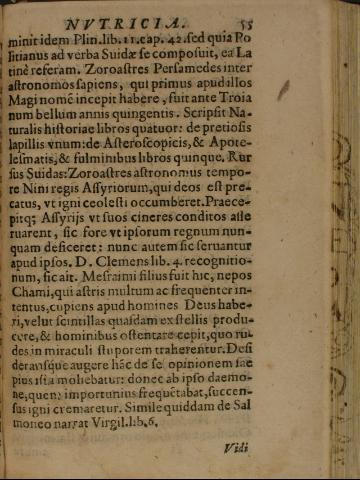 NVTRICIA. 55
minit idem Plin.lib.11.cap. 42.sed quia Po
litianus ad verba Suidæ se composuit, ea La
tinè referam. Zoroastres Persamedes inter
astronomos sapiens, qui primus apud illos
Magi nomē incepit habere, fuit ante Troia
num bellum annis quingentis. Scripsit Na-
turalis historiae libros quatuor: de pretiosis
lapillis vnum: de Asteroscopicis, & Apote-
lesmatis, & fulminibus libros quinque. Rur
sus Suidas: Zoroastres astronomus tempo-
re Nini regis Assyriorum, qui deos est pre-
catus, vt igni ceolesti occumberet. Praece-
pitq; Assyrijs vt suos cineres conditos asse
ruarent, sic fore vt ipsorum regnum nun-
quam deficeret: nunc autem sic seruantur
apud ipsos. D. Clemens lib. 4. recognitio-
num, sic ait. Mesraimi filius fuit hic, nepos
Chami, qui astris multum ac frequenter in-
tentus, cupiens apud homines Deus habe-
ri, velut scintillas quasdam ex stellis produ-
cere, & hominibus ostentare cepit, quo ru-
des in miraculi stuporem traherentur. Desi
deransque augere hāc de se opinionem sæ
pius ista moliebatur: donec ab ipso daemo-
ne, quem importunius frequētabat, succen-
sus igni cremaretur. Simile quiddam de Sal
moneo narrat Virgil.lib.6.
Vidi